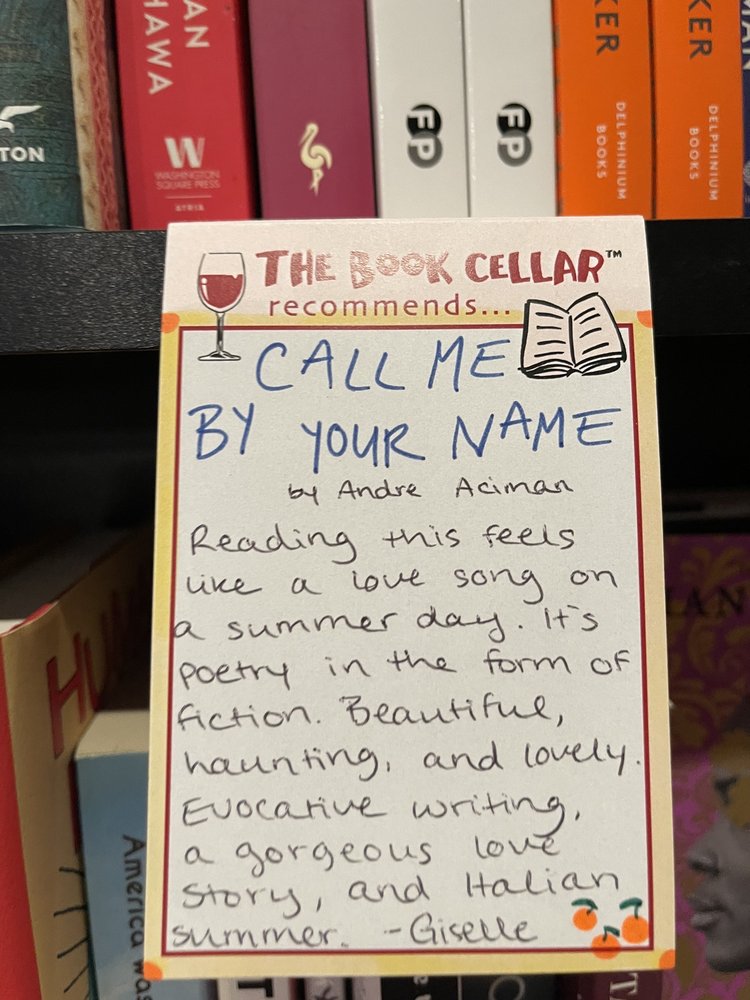 AN
HAWA
W
WASHINGTON
SQUARE PRESS
ATRIA
TON
FP
FP
KER
DELPHINIUM
BOOKS
KER
DELPHINIUM
BOOKS
MAN
THE BOOK CELLAR™
recommends...
CALL ME
BY YOUR NAME
by Andre Aciman
Reading this feels
like a love song on
a summer day. It's
poetry in the form of
fiction. Beautiful,
haunting, and lovely.
Evocative writing,
a gorgeous love
story, and Italian
summer. -Giselle
HU
America was
AN